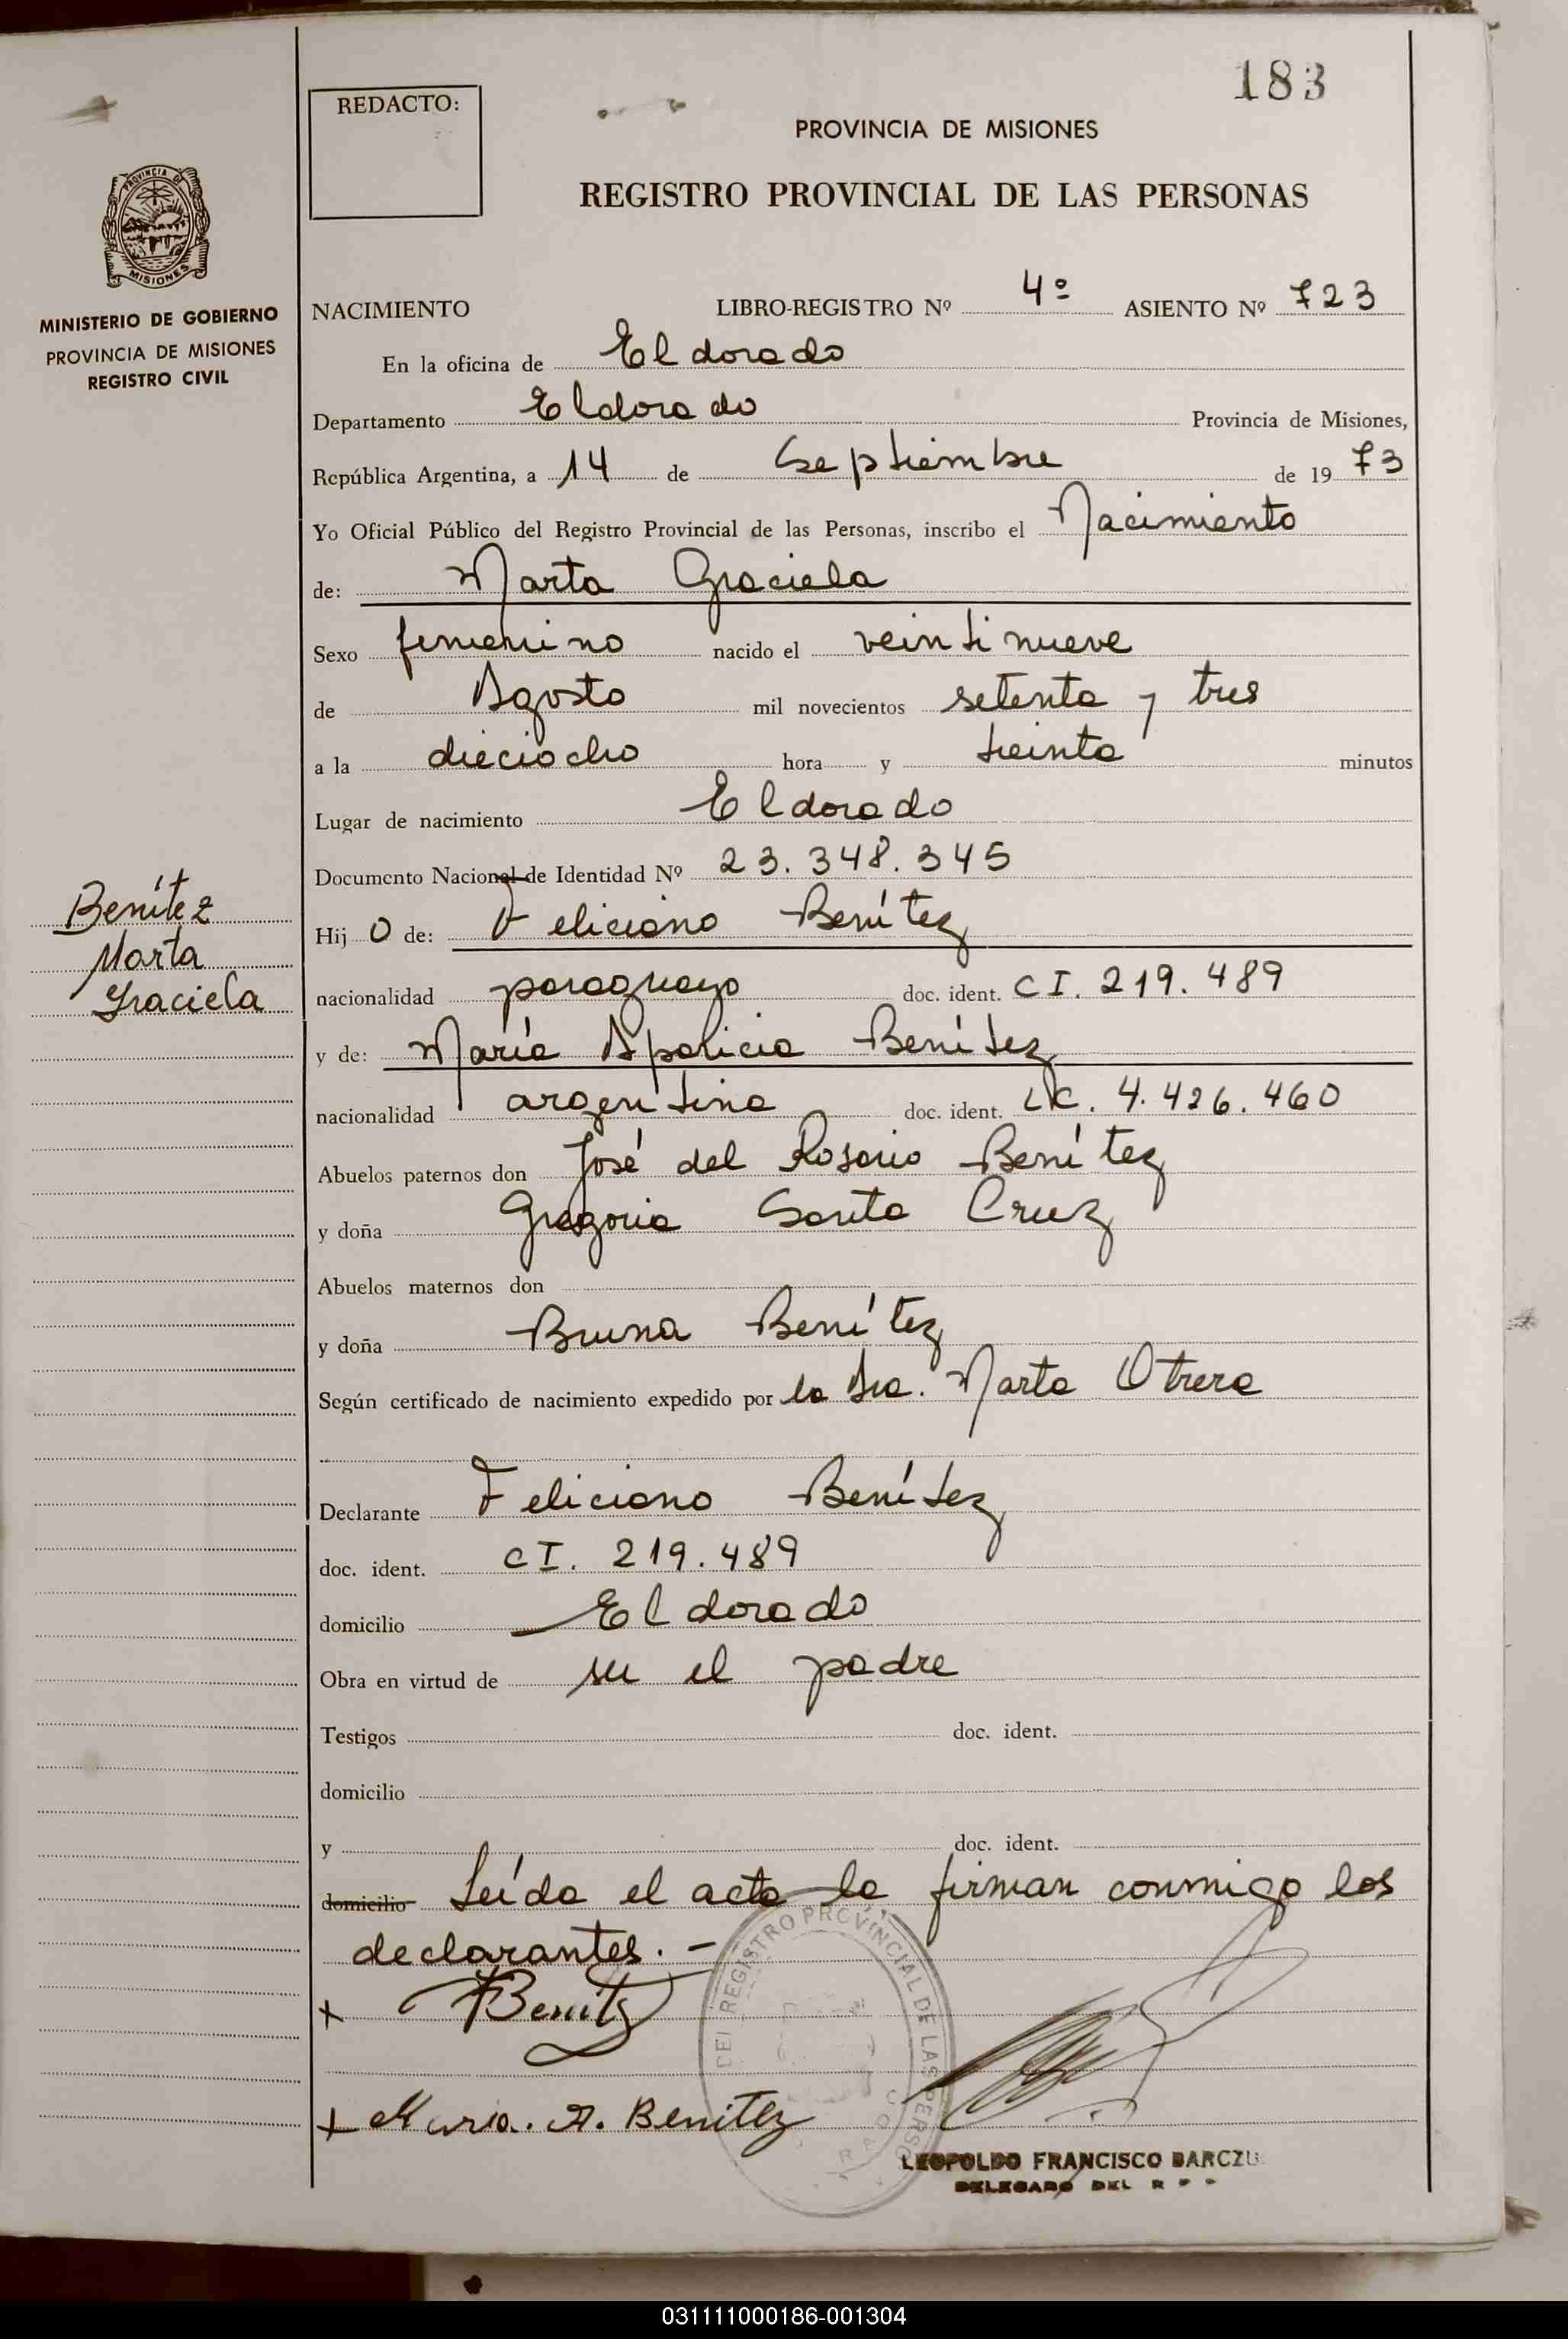 183
REDACTO:
PROVINCIA DE MISIONES
REGISTRO PROVINCIAL DE LAS PERSONAS
PROVINCIA DE
MISIONES
MINISTERIO DE GOBIERNO
PROVINCIA DE MISIONES
REGISTRO CIVIL
NACIMIENTO LIBRO-REGISTRO Nº 4º ASIENTO Nº 723
En la oficina de Eldorado
Departamento Eldorado Provincia de Misiones,
República Argentina, a 14 de Septiembre de 19 73
Yo Oficial Público del Registro Provincial de las Personas, inscribo el Nacimiento
de: Marta Graciela
Sexo femenino nacido el veintinueve
de Agosto mil novecientos setenta y tres
a la dieciocho hora y treinta minutos
Lugar de nacimiento Eldorado
Documento Nacional de Identidad Nº 23.348.345
Benítez
Marta
Graciela
Hij o de: Feliciano Benítez
nacionalidad paraguayo doc. ident. CI. 219.489
y de: María Aparicia Benítez
nacionalidad argentina doc. ident. LC. 4.426.460
Abuelos paternos don José del Rosario Benítez
y doña Gregoria Santa Cruz
Abuelos maternos don
y doña Bruna Benítez
Según certificado de nacimiento expedido por la Sra. Marta Otrera
Declarante Feliciano Benítez
doc. ident. CI. 219.489
domicilio Eldorado
Obra en virtud de ser el padre
Testigos doc. ident.
domicilio
y doc. ident.
domicilio Leída el acta la firman conmigo los
declarantes. -
+ FBenitz
+ Maria. A. Benitez
DEL REGISTRO PROVINCIAL DE LAS PERSO
LEOPOLDO FRANCISCO BARCZU
DELEGADO DEL R P P
031111000186-001304